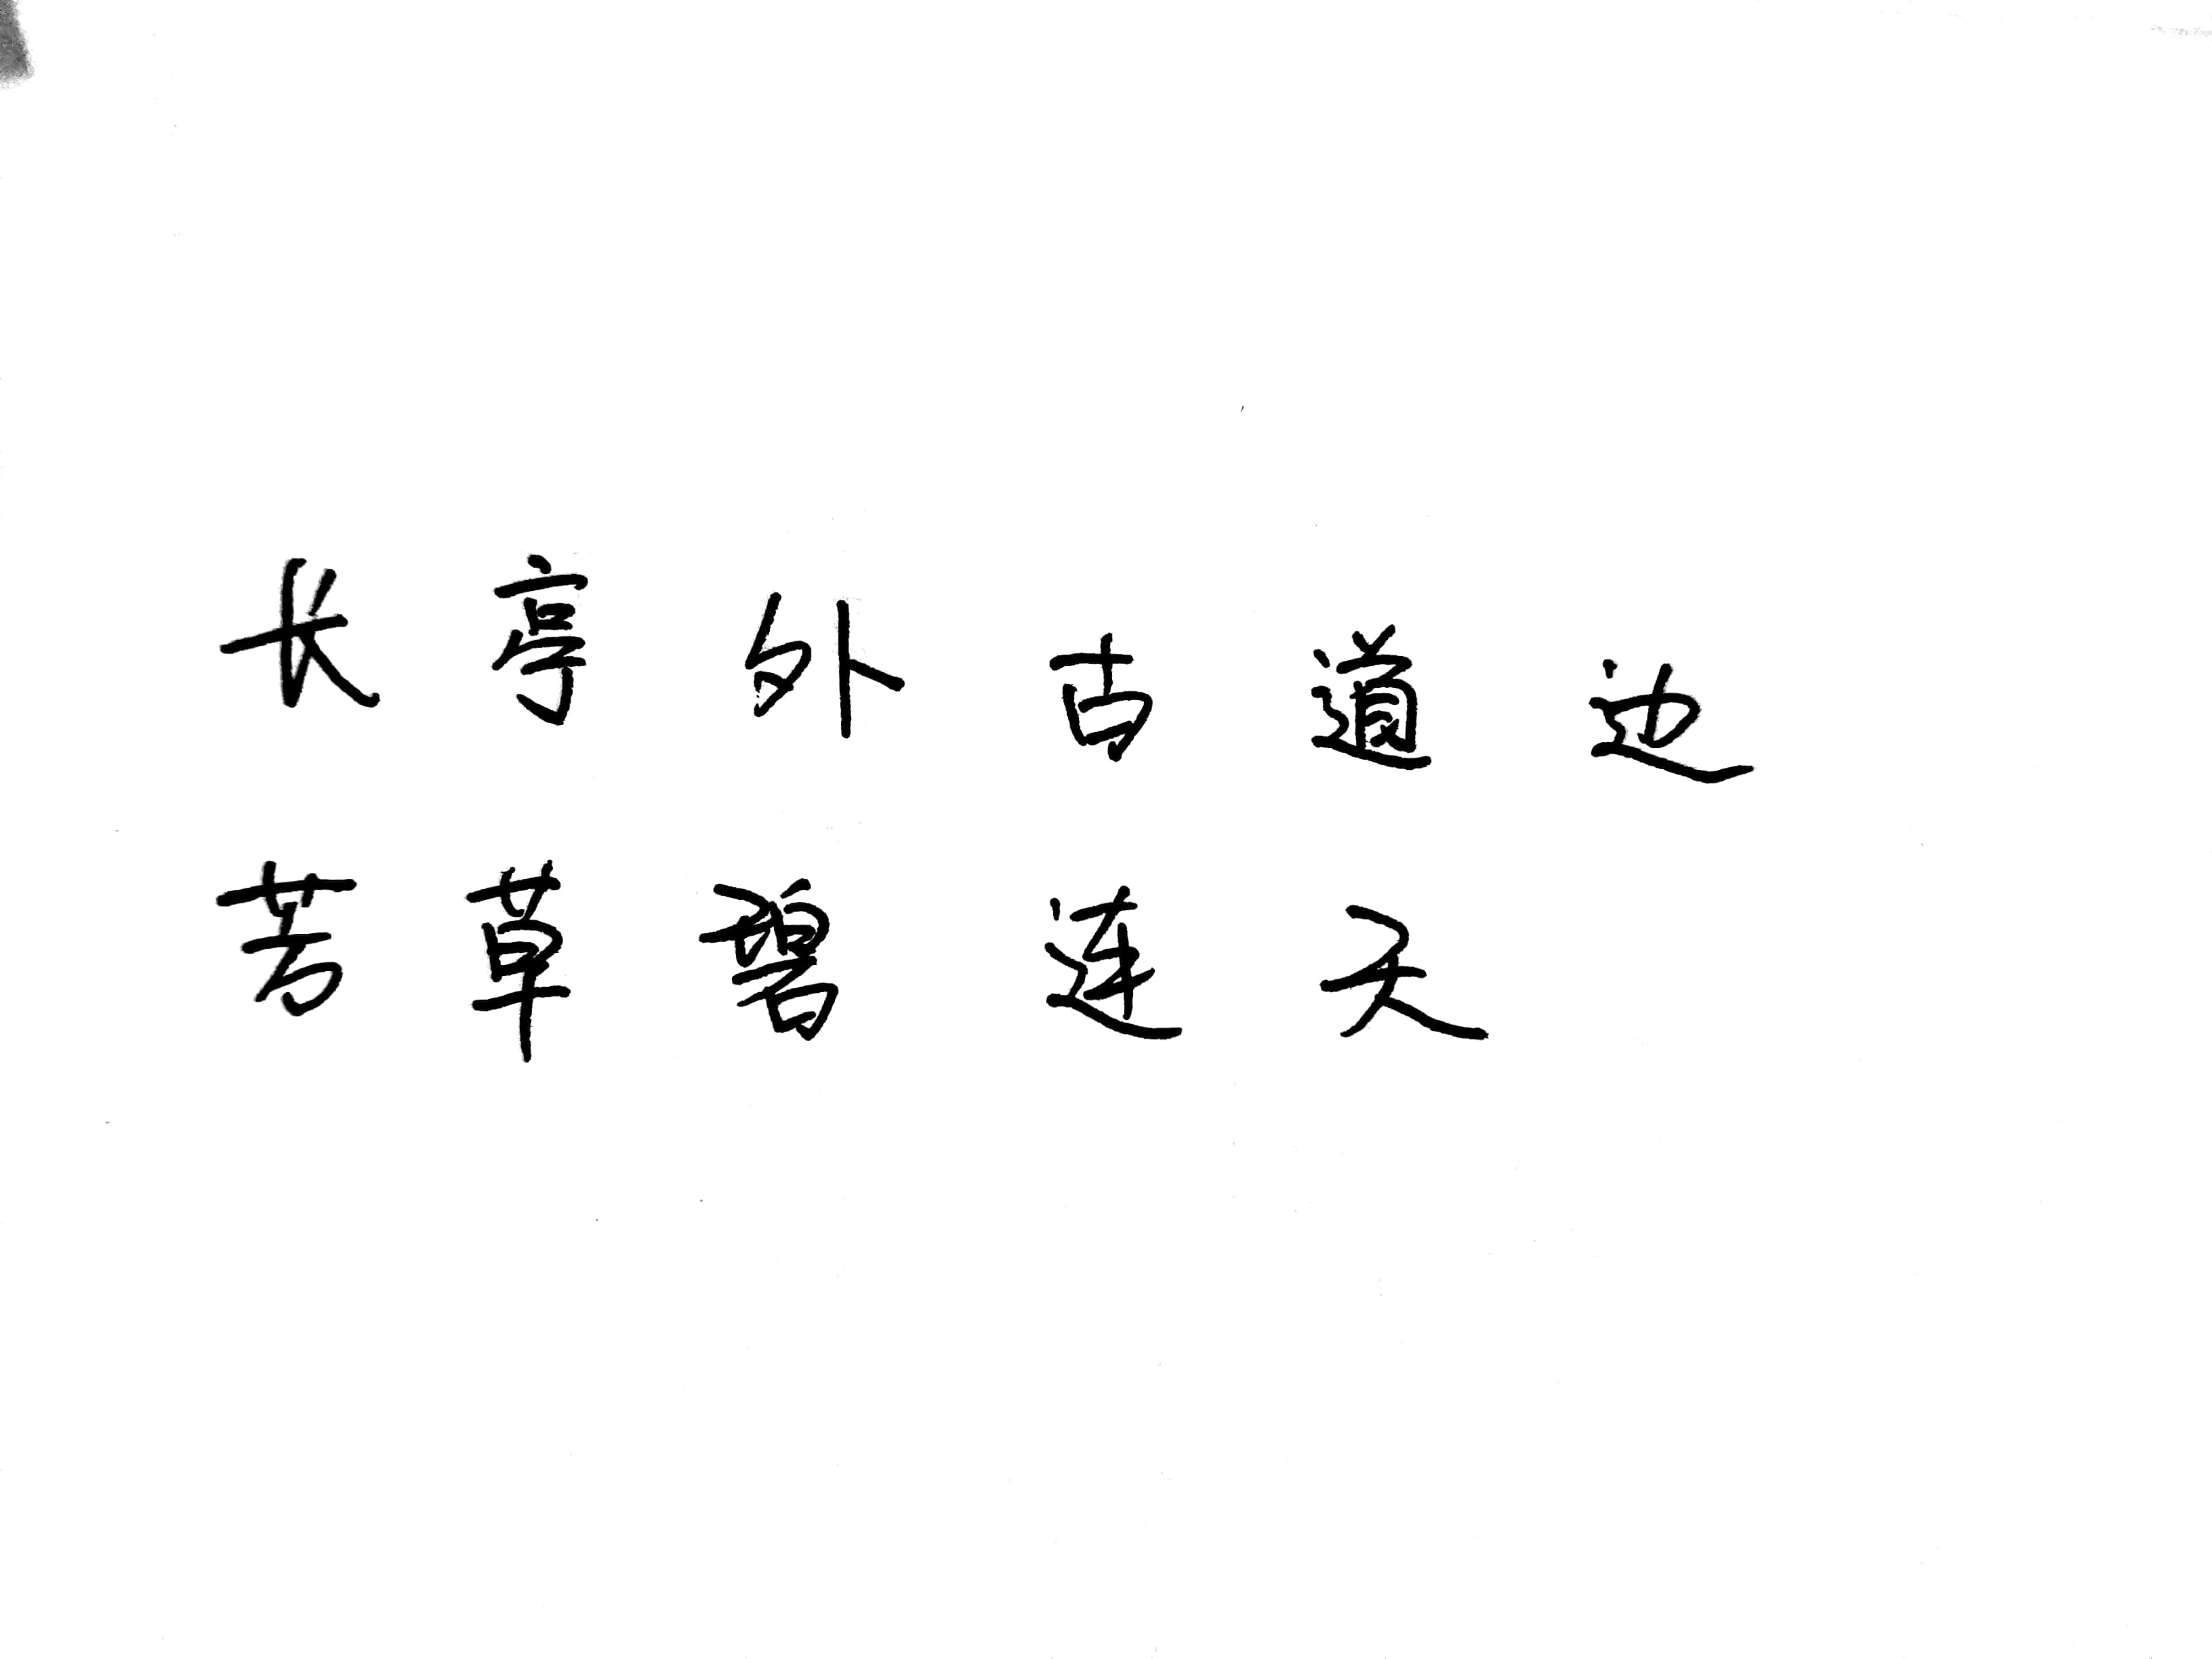 长亭外古道边
芳草碧连天